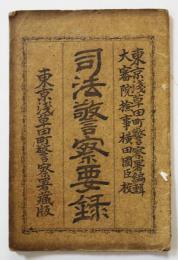 東京淺草田町警察署編輯
大審院檢事横田國臣校
司法警察要録
東京淺草田町警察署藏版